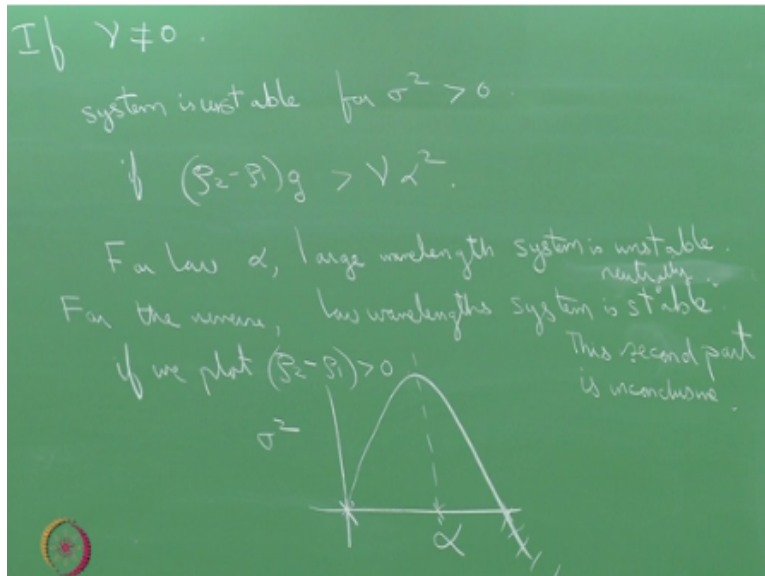 If γ ≠ 0.
system is unstable for σ² > 0.
if (ρ₂-ρ₁)g > γα².
For low α, large wavelength system is unstable.
neutrally
For the reverse, low wavelengths system is stable.
This second part
is inconclusive.
if we plot (ρ₂-ρ₁)>0
σ²
α